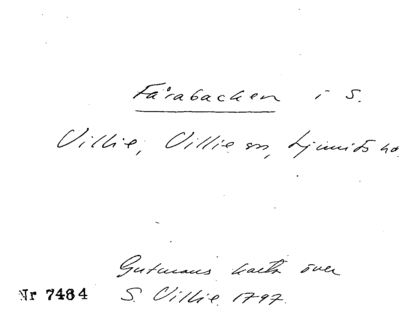 Fårabacken i S.
Villie, Villie sn, Ljunits hd.
Gutmans karta över
Nr 7484 S. Villie 1797.